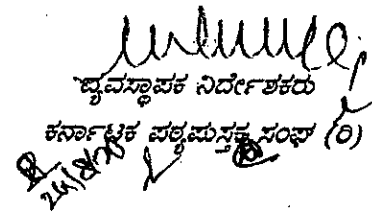 ವ್ಯವಸ್ಥಾಪಕ ನಿರ್ದೇಶಕರು
ಕರ್ನಾಟಕ ಪಠ್ಯಪುಸ್ತಕ ಸಂಘ (ರಿ)